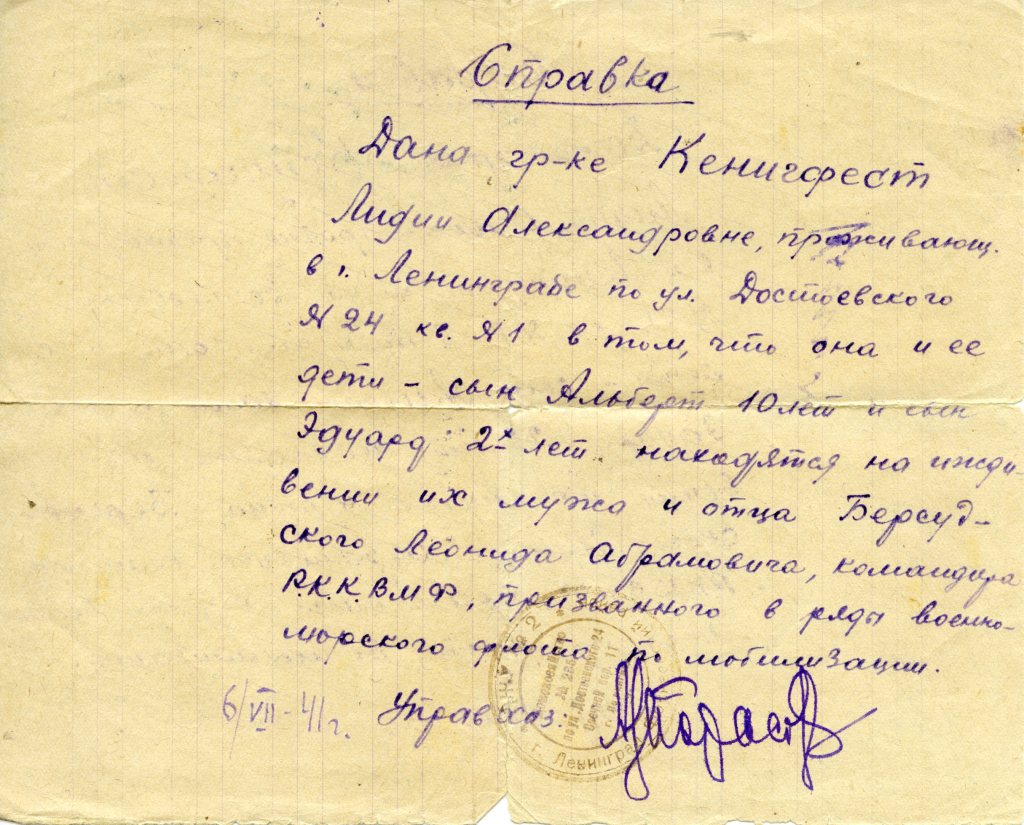 Справка
Дана гр-ке Кенигфест
Лидии Александровне, проживающ.
в г. Ленинграде по ул. Достоевского
№ 24 кв. №1 в том, что она и ее
дети - сын Альберт 10 лет и сын
Эдуард 2х лет. находятся на ижди-
вении их мужа и отца Берсуд-
ского Леонида Абрамовича, командира
Р.К.К.ВМФ, призванного в ряды военно-
морского флота по мобилизации.
6/VII-41г. Управхоз:
по ул. Достоевского 24
г. Ленинград